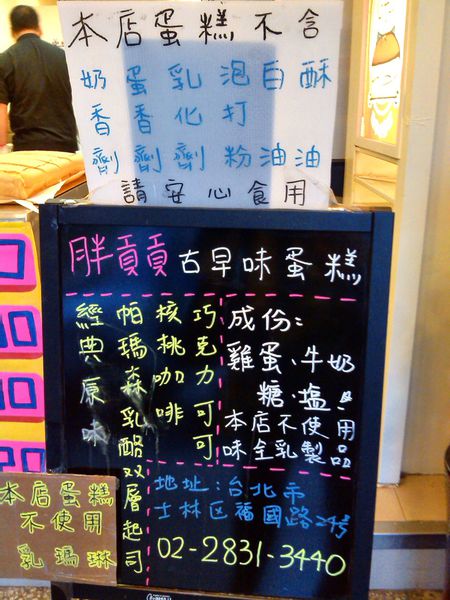 本店蛋糕不含
奶香劑
蛋香劑
乳化劑
泡打粉
白油
酥油
請安心食用
胖貢貢古早味蛋糕
經典原味
帕瑪森乳酪双層起司
核桃咖啡
巧克力可可
成份:
雞蛋、牛奶
糖、塩
本店不使用
味全乳製品
地址:台北市
士林区福國路24號
02-2831-3440
本店蛋糕
不使用
乳瑪琳